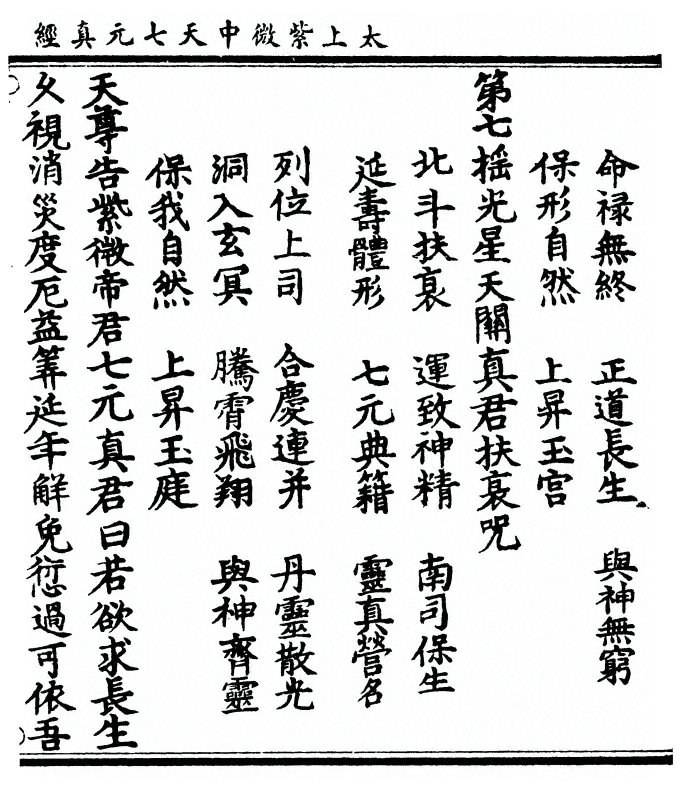 太上紫微中天七元真經
命禄無終　正道長生　與神無窮
保形自然　上昇玉宫
第七揺光星天關真君扶衰咒
北斗扶衰　運致神精　南司保生
延壽體形　七元典籍　靈真營名
列位上司　合慶連并　丹靈散光
洞入玄冥　騰霄飛翔　與神齊靈
保我自然　上昇玉庭
天尊告紫微帝君七元真君曰若欲求長生
久視消災度厄益筭延年解免愆過可依吾